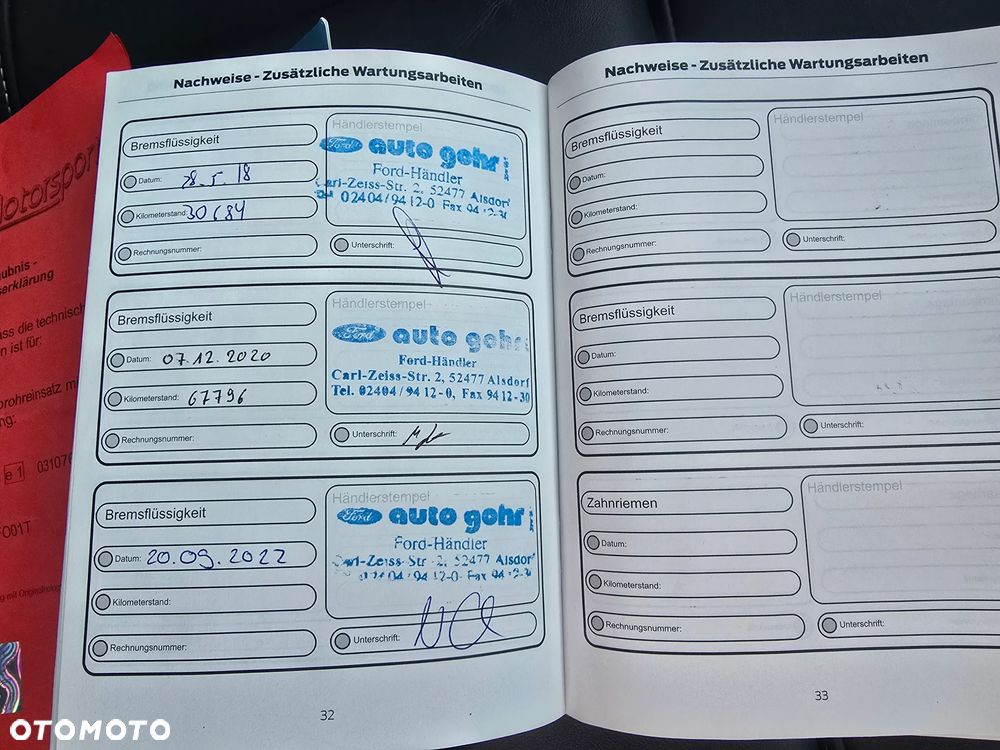 Nachweise - Zusätzliche Wartungsarbeiten
Bremsflüssigkeit
Händlerstempel
Ford auto gohr
Ford-Händler
Carl-Zeiss-Str. 2, 52477 Alsdorf
Tel. 02404/94 12-0 Fax 94 12-30
Datum: 18
Kilometerstand: 30684
Rechnungsnummer:
Unterschrift:
Bremsflüssigkeit
Händlerstempel
Ford auto gohr
Ford-Händler
Carl-Zeiss-Str. 2, 52477 Alsdorf
Tel. 02404/94 12-0, Fax 94 12-30
Datum: 07.12.2020
Kilometerstand: 67796
Rechnungsnummer:
Unterschrift:
Bremsflüssigkeit
Händlerstempel
Ford auto gohr
Ford-Händler
Carl-Zeiss-Str. 2, 52477 Alsdorf
02404/94 12-0 Fax 94 12-30
Datum: 20.09.2022
Kilometerstand:
Rechnungsnummer:
Unterschrift:
32
Nachweise - Zusätzliche Wartungsarbeiten
Bremsflüssigkeit
Händlerstempel
Datum:
Kilometerstand:
Rechnungsnummer:
Unterschrift:
Bremsflüssigkeit
Händlerstempel
Datum:
Kilometerstand:
Rechnungsnummer:
Unterschrift:
Zahnriemen
Händlerstempel
Datum:
Kilometerstand:
Rechnungsnummer:
Unterschrift:
33
Motorspor
ubnis -
serklärung
ass die technisch
n ist für:
brohreinsatz mi
ng:
e 1 031076
FO01T
OTOMOTO